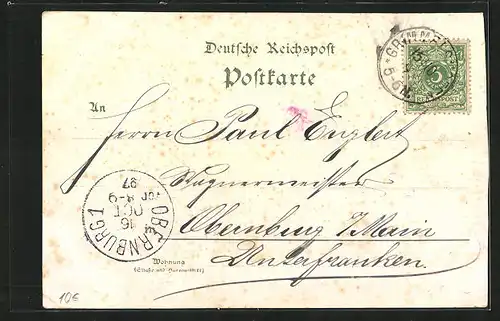 Deutsche Reichspost
Postkarte
An
Herrn Paul Englert
Wagnermeister
Obernburg a/Main
Unterfranken.
Wohnung
(Straße und Hausnummer)
OBERNBURG 1
16
OCT
8-9
97
3
REICHSPOST
10€